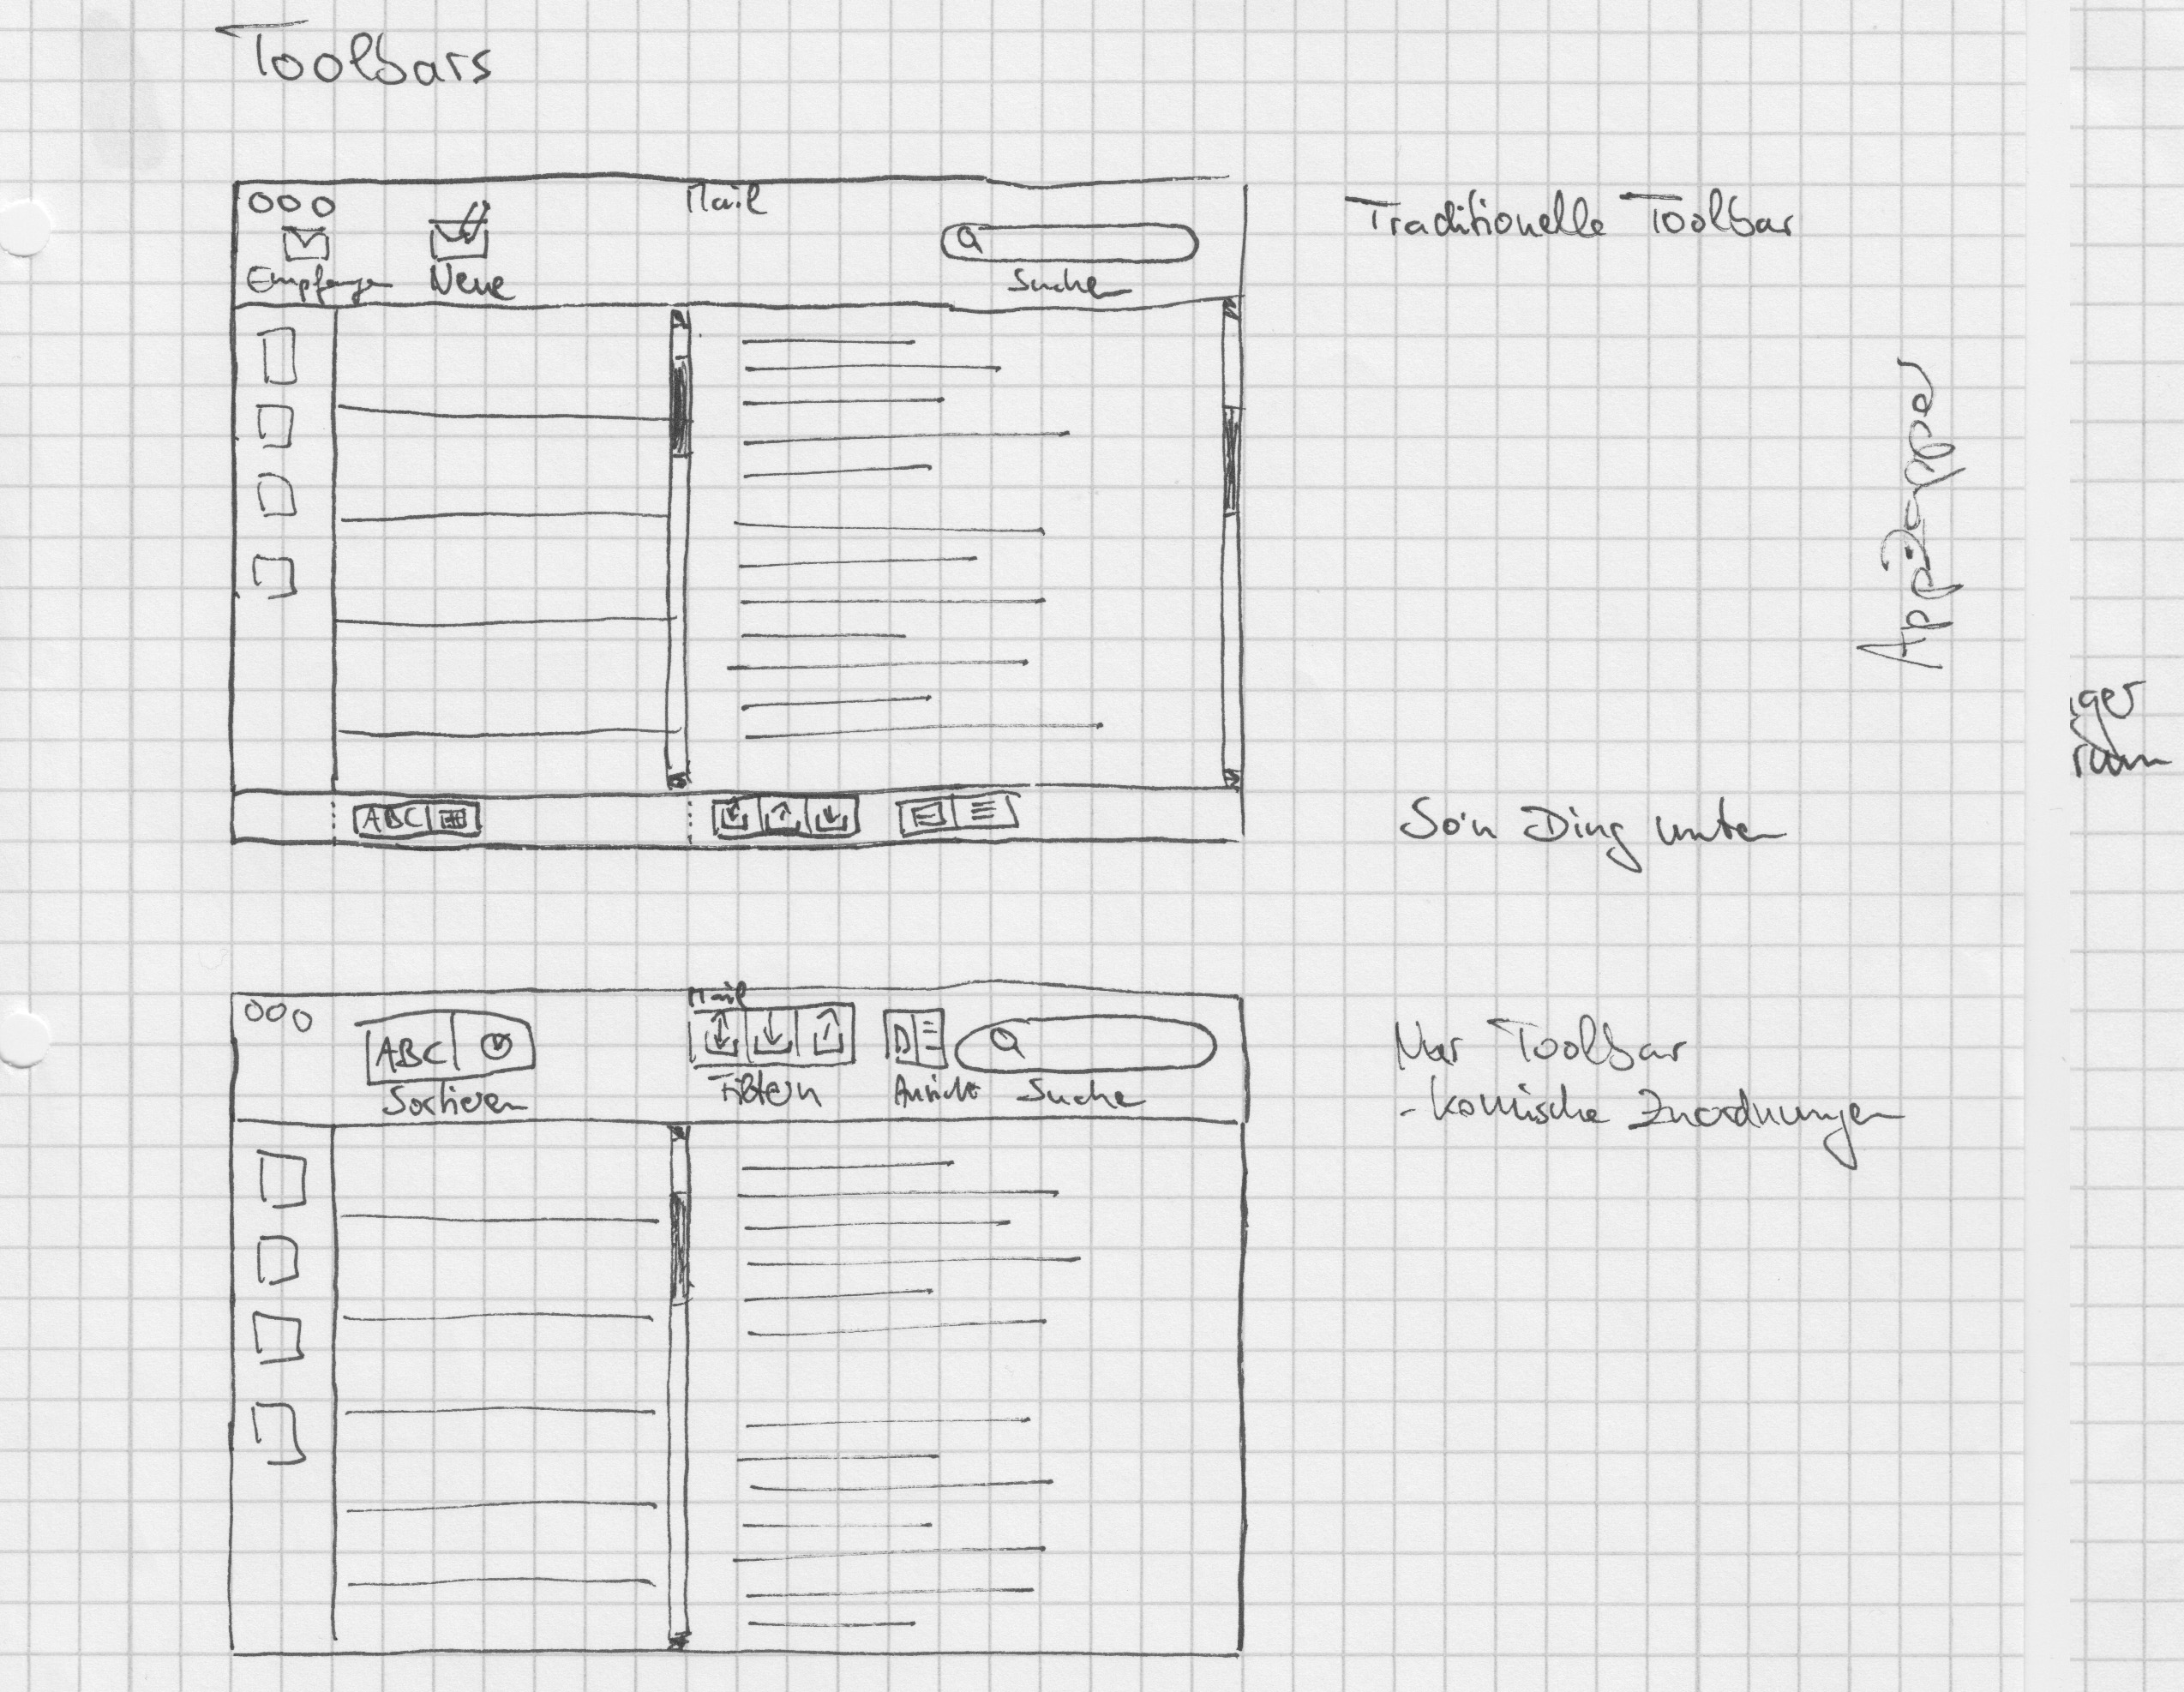 Toolbars
Mail
Empfangen
Neue
Suchen
Traditionelle Toolbar
AppZapper
ABC
So'n Ding unten
Mail
ABC
Sortieren
Filtern
Ansicht
Suche
Nur Toolbar
- komische Zuordnungen